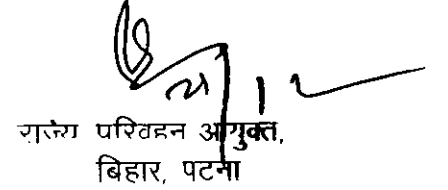 राज्य परिवहन आयुक्त,
बिहार, पटना